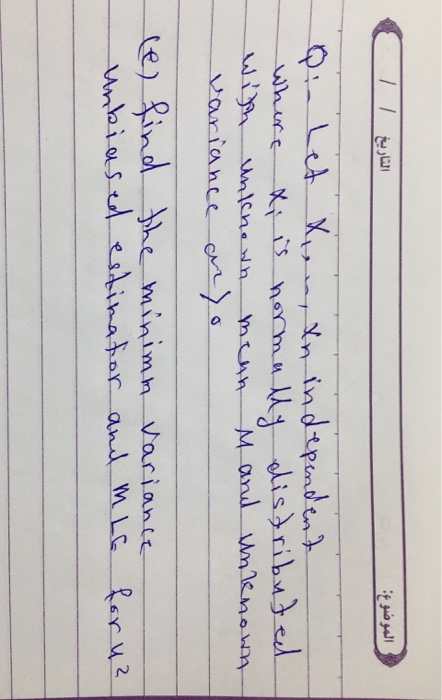 التاريخ / /
الموضوع:
Q:- Let X1, -, Xn independent
where Xi is normally distributed
with unknown mean M and unknown
variance σ²>0
(e) find the minimum variance
unbiased estimator and MLE for M²